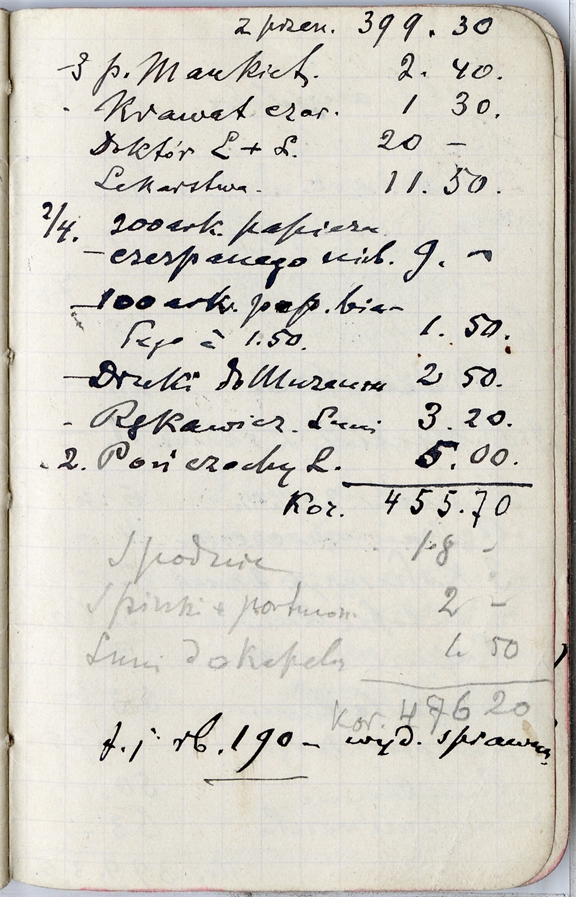 z przen. 399.30
3 p. Mankiet. 2.40.
Krawat czar. 1 30.
Doktór L + L. 20 –
Lekarstwa. 11.50.
2/4. 200 ark. papieru
– czerpanego nieb. 9. –
– 100 ark. pap. bia-
łego à 1.50. 1.50.
– Druki do Muzeum 2 50.
- Rękawicz. Luni 3.20.
2. Pończochy L. 5.00.
Kor. 455.70
Spodnie 18 -
Spinki + portmon. 2 –
Luni do kapelu 50
Kor. 476 20
t.j. rb. 190 – wyd. sprawun.